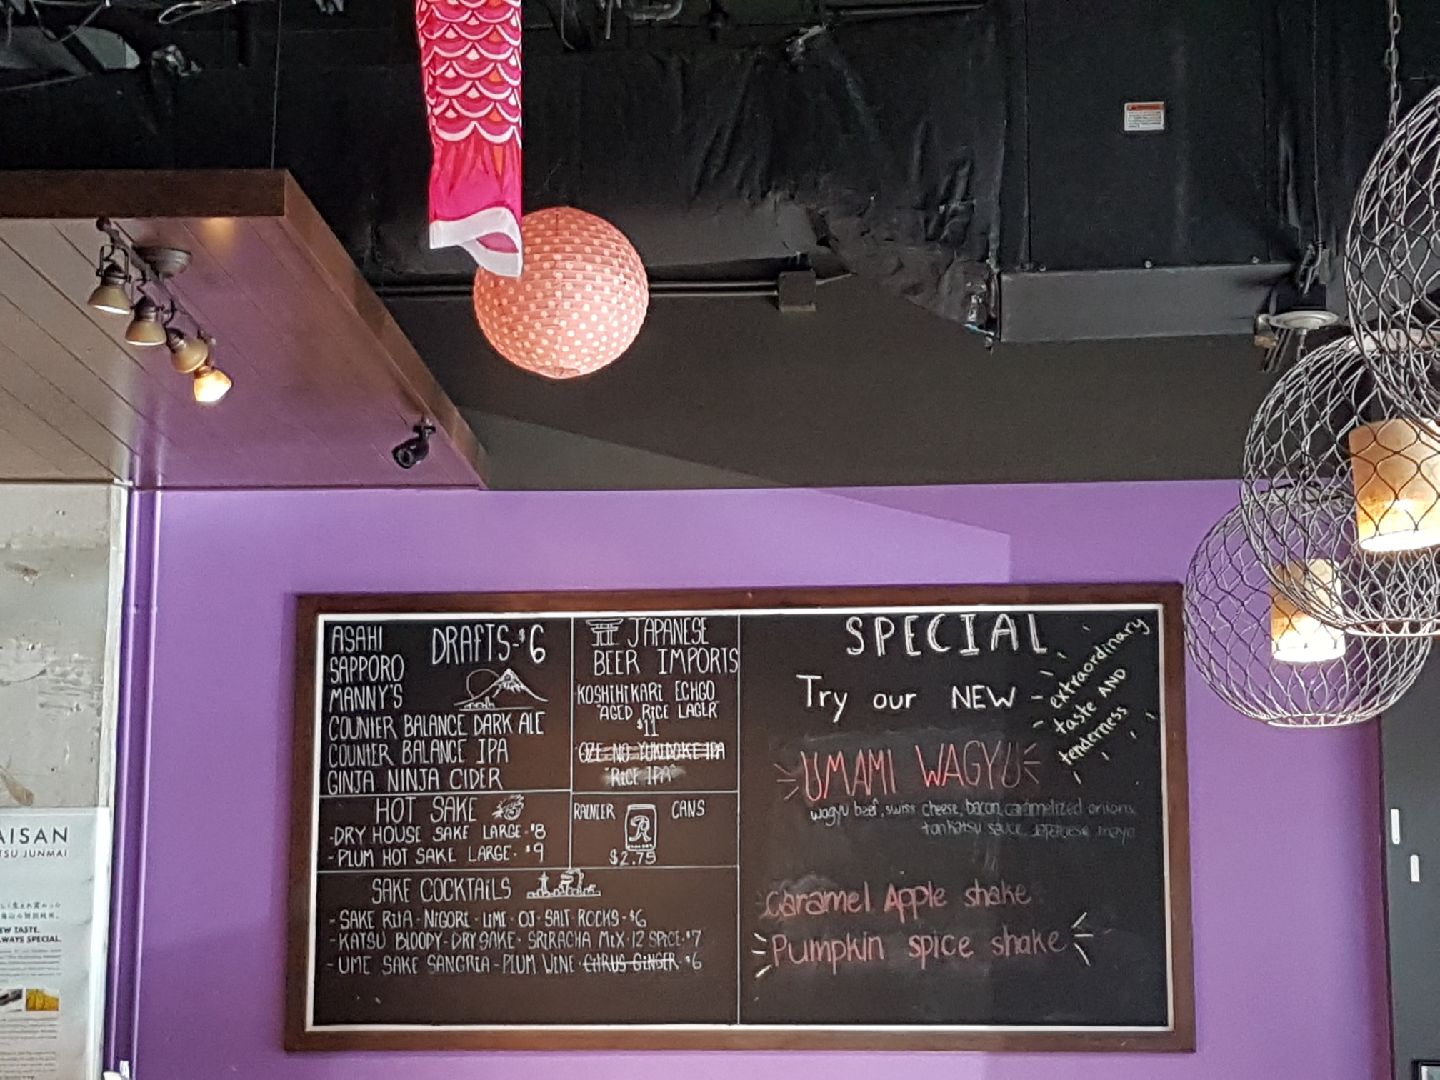 ASAHI
SAPPORO
MANNY'S
COUNTER BALANCE DARK ALE
COUNTER BALANCE IPA
GINJA NINJA CIDER
DRAFTS-$6
HOT SAKE
-DRY HOUSE SAKE LARGE-$8
-PLUM HOT SAKE LARGE-$9
JAPANESE
BEER IMPORTS
KOSHIHIKARI ECHGO
"AGED RICE LAGER"
$11
OZE-NO-YUKIDOKE IPA
"RICE IPA"
RAINIER CANS
R
$2.75
SAKE COCKTAILS
-SAKE RITA-NIGORI-LIME-OJ-SALT ROCKS-$6
-KATSU BLOODY-DRY SAKE-SRIRACHA MIX-12 SPICE-$7
-UME SAKE SANGRIA-PLUM WINE-CITRUS GINGER-$6
SPECIAL
Try our NEW
extraordinary
taste AND
tenderness
UMAMI WAGYU
wagyu beef, swiss cheese, bacon, caramelized onions
tonkatsu sauce, Japanese mayo
Caramel Apple shake
Pumpkin spice shake
AISAN
TSU JUNMAI
EW TASTE.
WAYS SPECIAL.